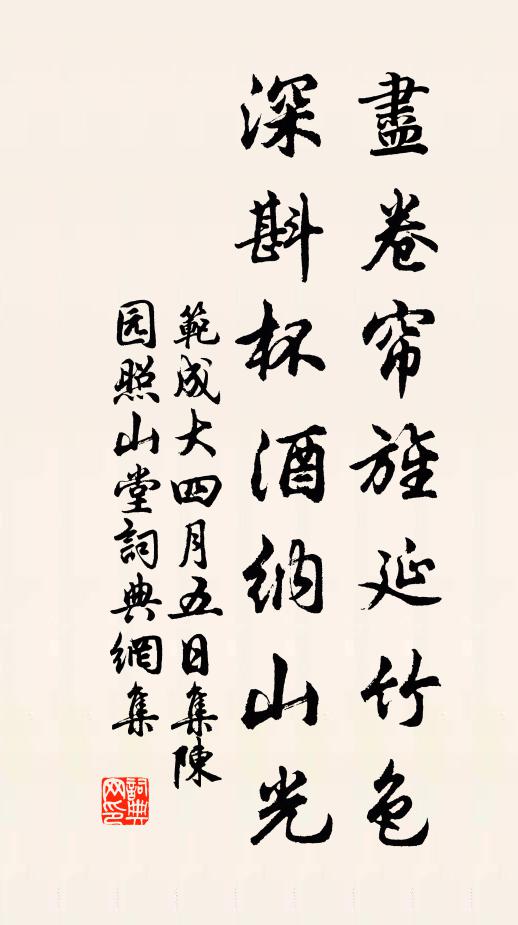 盡卷帘旌延竹色
深斟杯酒納山光
範成大四月五日集陳
园照山堂詞典網集
詞典
网印